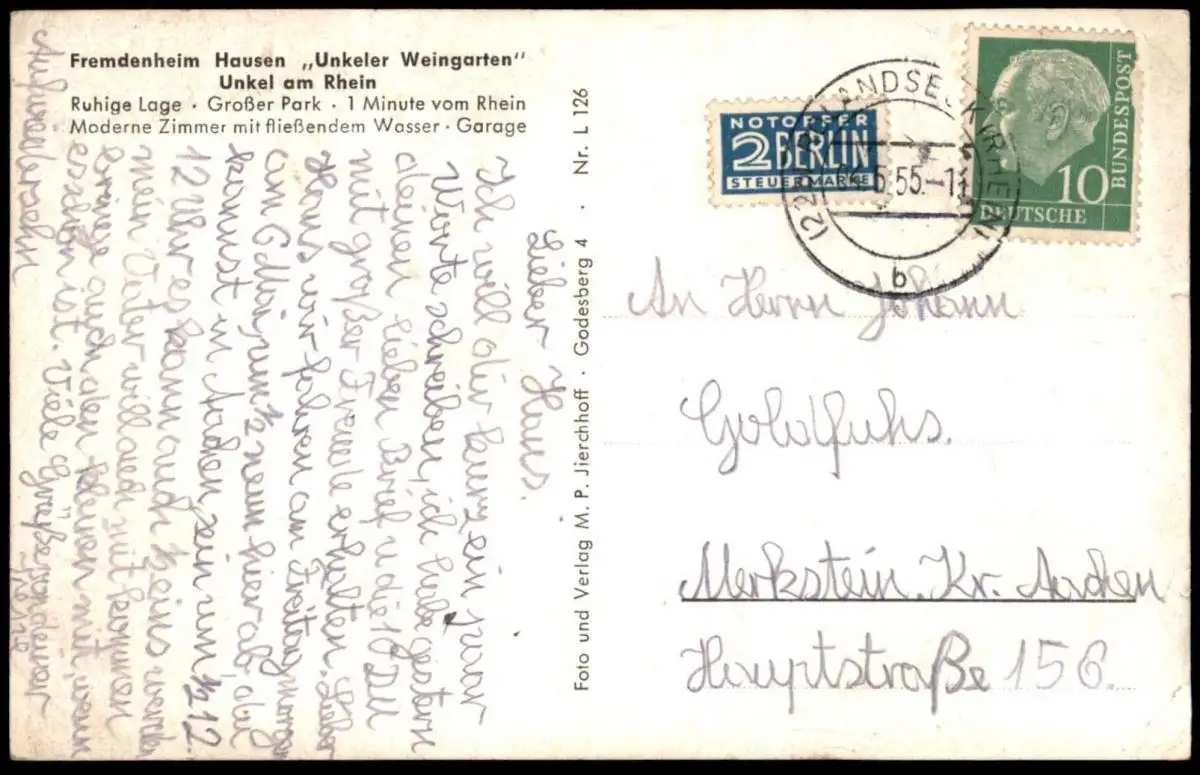 Fremdenheim Hausen „Unkeler Weingarten"
Unkel am Rhein
Ruhige Lage · Großer Park · 1 Minute vom Rhein
Moderne Zimmer mit fließendem Wasser · Garage
Lieber Hans.
Ich will dir kurz ein paar
Worte schreiben, ich habe gestern
deinen lieben Brief u die 10 DM
mit großer Freude erhalten. Lieber
Hans wir fahren am Freitag morgen
am um ½ neun hier ab, du
kommst in Aachen sein um ½ 12.
12 Uhr es kann auch h eins werden
mein Vater will dich mit
bringe auch den kleinen mit, wenn
er schön ist. Viele Grüße von deiner
Auf wiedersehn
Foto und Verlag M. P. Jierchhoff · Godesberg 4 · Nr. L 126
NOTOPFER
2 BERLIN
STEUERMARKE
5.55.-11
b
10
DEUTSCHE
BUNDESPOST
An Herrn Johann
Goldfuhs.
Merkstein. Kr. Aachen
Hauptstraße 156.